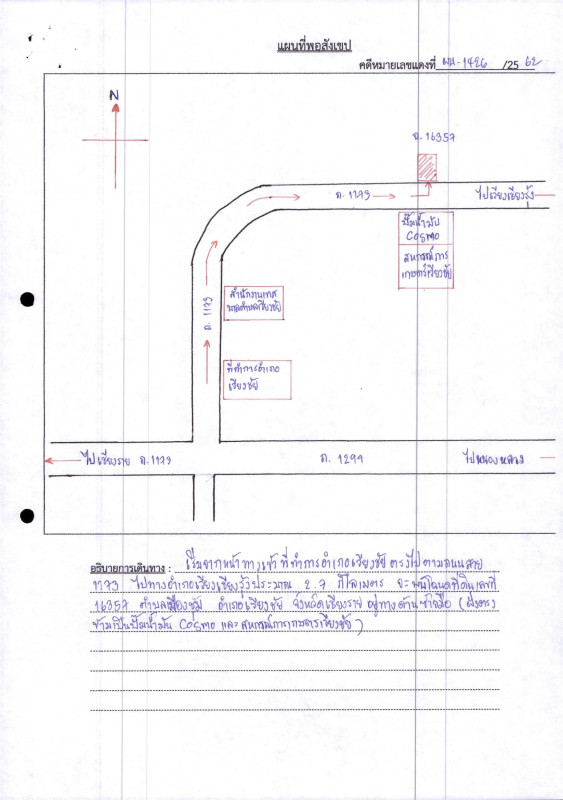 แผนที่พอสังเขป
คดีหมายเลขแดงที่ ผบ.1426 /25 62
N
ฉ. 16357
ถ. 1173
ไปเวียงเชียงรุ้ง
ปั๊มน้ำมัน
Cosmo
สหกรณ์การ
เกษตรเวียงชัย
สำนักงานเทศ
บาลตำบลเวียงชัย
ถ. 1173
ที่ทำการอำเภอ
เวียงชัย
ไปเชียงราย ถ. 1173
ถ. 1299
ไปหนองหลวง
อธิบายการเดินทาง : เริ่มจากหน้าทางเข้า ที่ทำการอำเภอเวียงชัย ตรงไปตามถนนสาย
1173 ไปทางอำเภอเวียงเชียงรุ้งประมาณ 2.7 กิโลเมตร จะพบโฉนดที่ดินเลขที่
16357 ตำบลเมืองชุม อำเภอเวียงชัย จังหวัดเชียงราย อยู่ทางด้านซ้ายมือ (ฝั่งตรง
ข้ามเป็นปั๊มน้ำมัน Cosmo และสหกรณ์การเกษตรเวียงชัย)